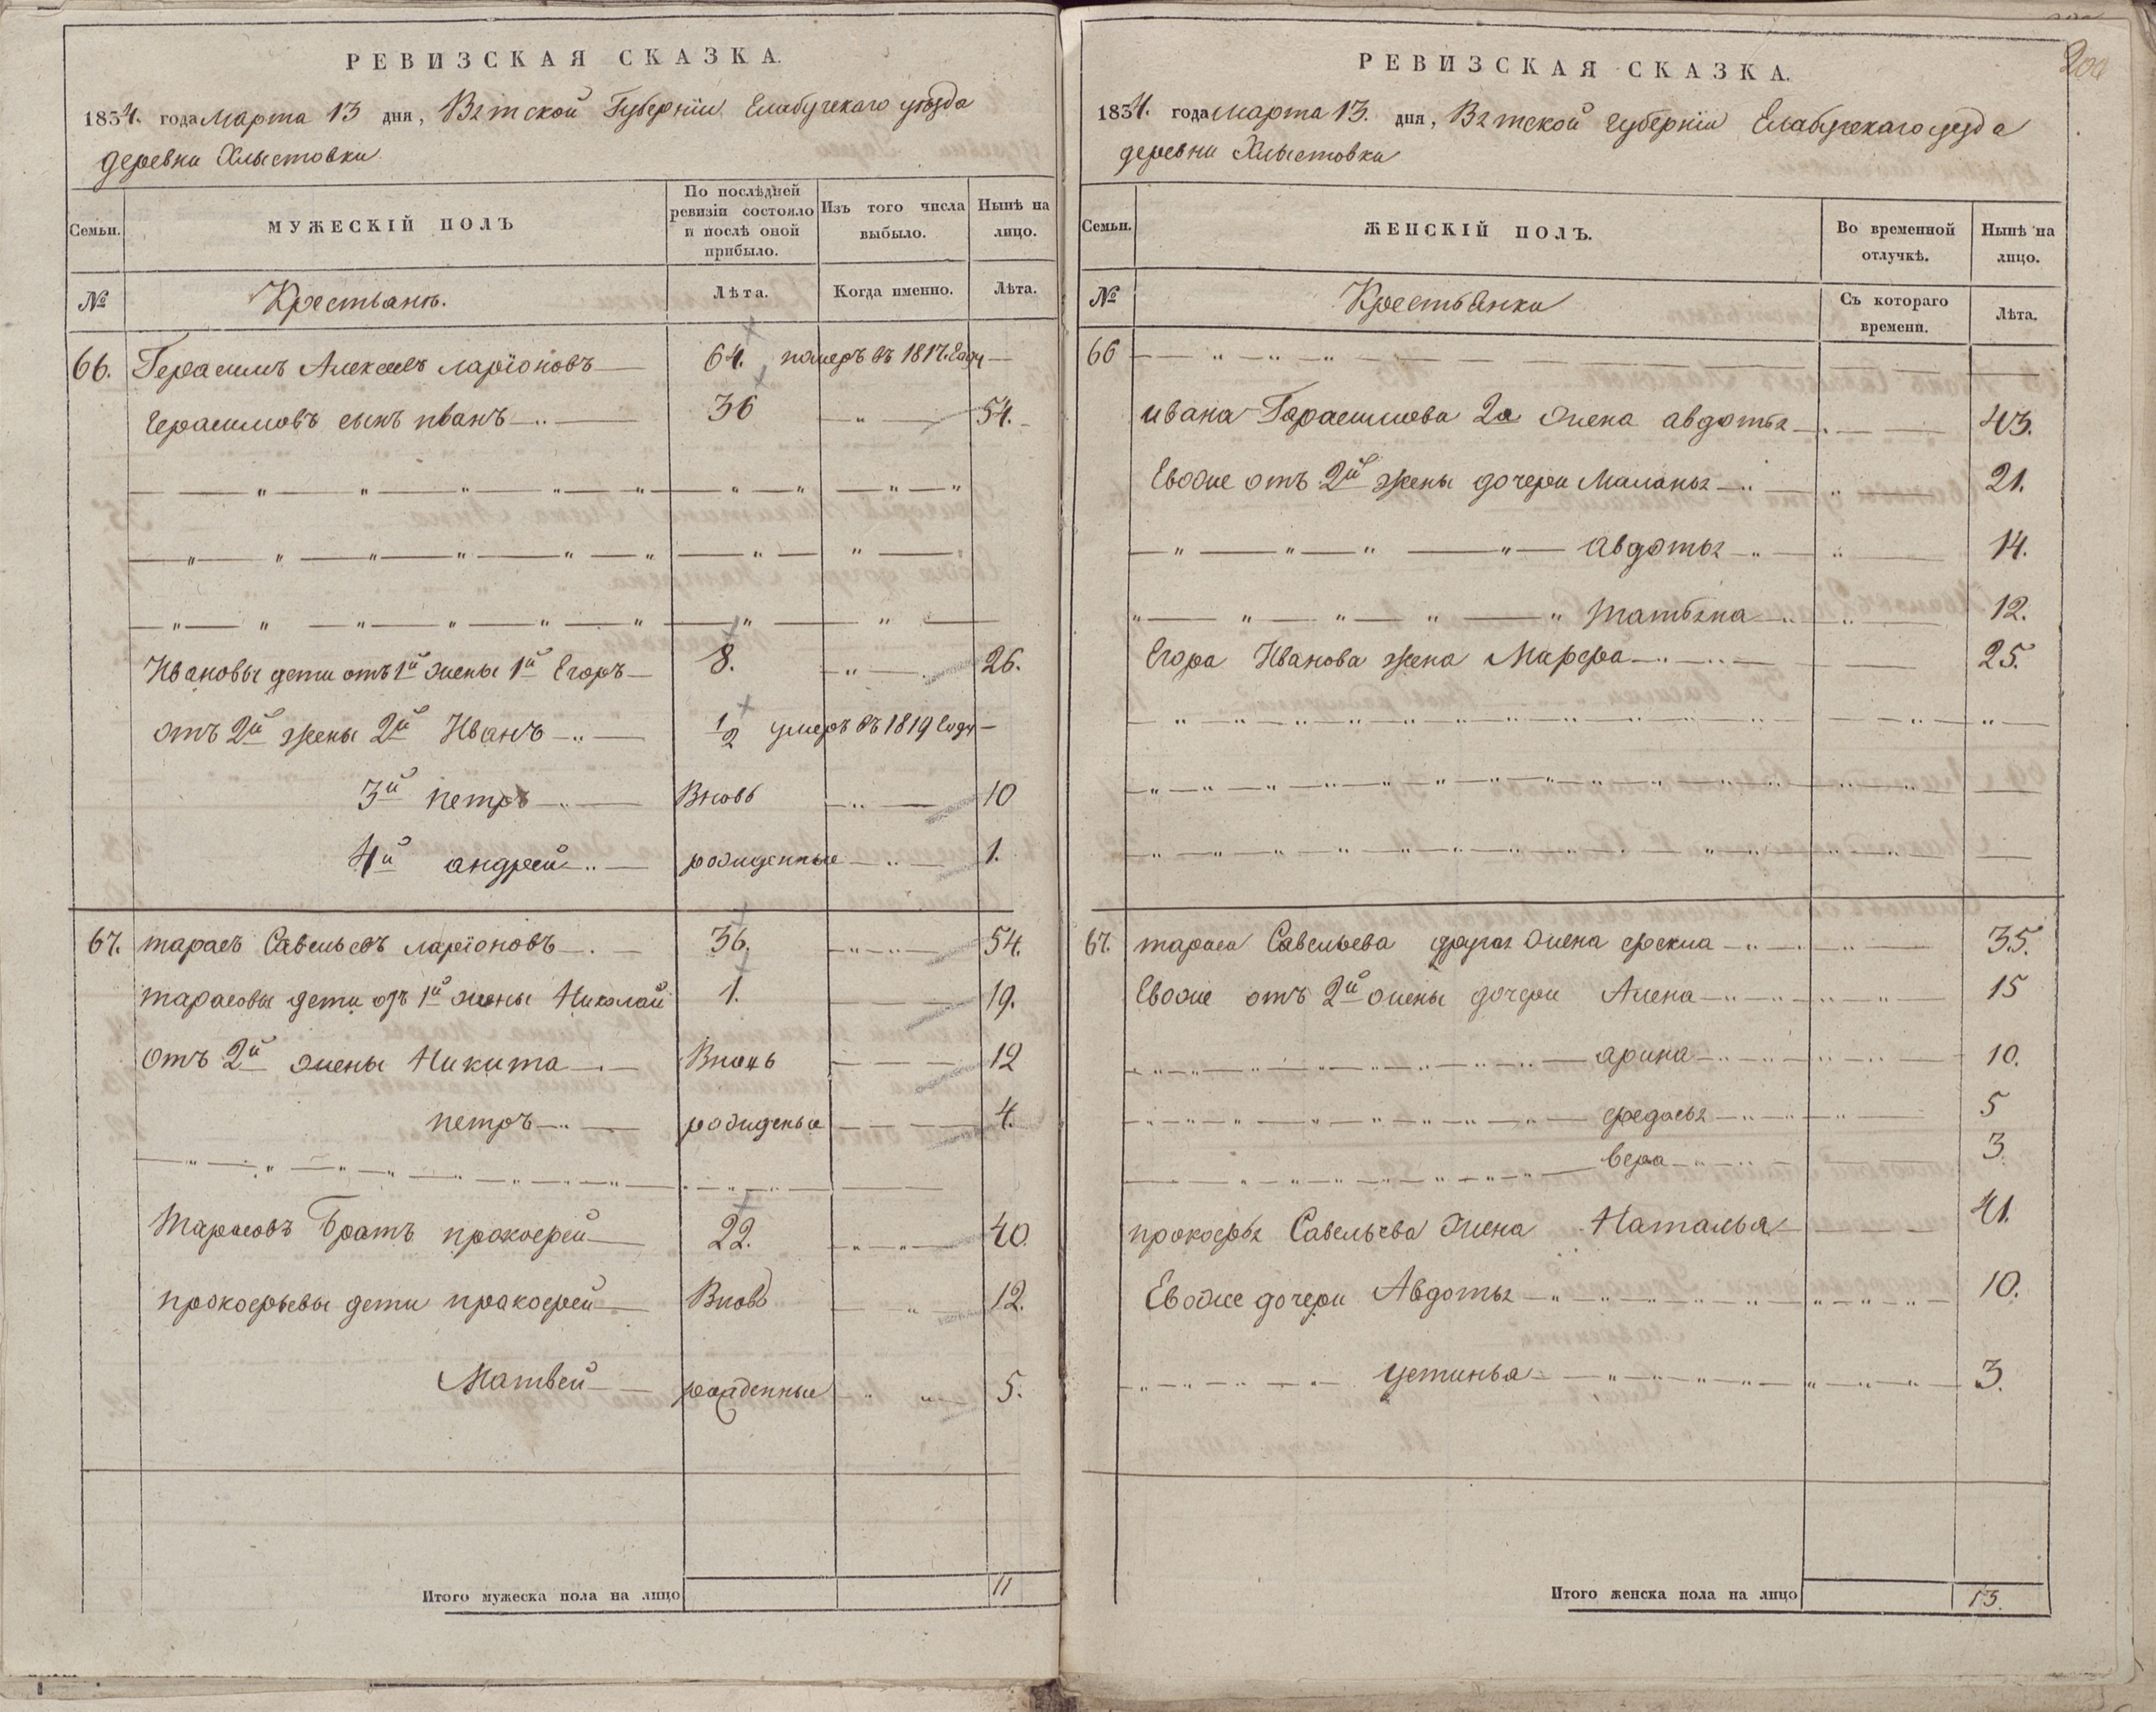 РЕВИЗСКАЯ СКАЗКА.
1834. года марта 13 дня, Вятской Губерніи Елабучскаго уѣзда
деревни Хлыстовки
Семьи.
МУЖЕСКІЙ ПОЛЪ
По послѣдней ревизіи состояло и послѣ оной прибыло.
Изъ того числа выбыло.
Нынѣ на лицо.
№
Крестьянъ.
Лѣта.
Когда именно.
Лѣта.
66. Герасимъ Алексѣевъ ларіоновъ 64. померъ въ 1817. Году
Герасимовъ сынъ иванъ 36 54.
Ивановы дети отъ 1й жены 1й Егоръ 8. 26.
отъ 2й жены 2й Иванъ 1/2 умеръ въ 1819 Году
3й петръ Вновь 10
4й андрей рожденные 1.
67. тарасъ Савельевъ ларіоновъ 36. 54.
тарасовы дети отъ 1й жены Николай 1. 19.
отъ 2й жены Никита Вновь 12
петръ рожденые 4.
Тарасовъ Братъ прокофей 22. 40.
прокофьевы дети пракофей Вновь 12.
Матвей рожденные 5.
Итого мужеска пола на лицо 11
200
РЕВИЗСКАЯ СКАЗКА.
1834. года марта 13. дня, Вятской губерніи Елабучскаго уезда
деревни Хлыстовки
Семьи.
ЖЕНСКІЙ ПОЛЪ.
Во временной отлучкѣ.
Нынѣ на лицо.
№
Крестьянки
Съ котораго времени.
Лѣта.
66
ивана Герасимова 2а жена авдотья 43.
Евоже отъ 2й жены дочери Маланья 21.
авдотья 14.
татьяна 12.
Егора Иванова жена Марфа 25.
67. тараса Савельева другая жена фекла 35.
Евоже отъ 2й жены дочери Алена 15
арина 10.
федосья 5
вера 3.
прокофья Савельева жена Наталья 41.
Евоже дочери Авдотья 10.
устинья 3.
Итого женска пола на лицо 13.